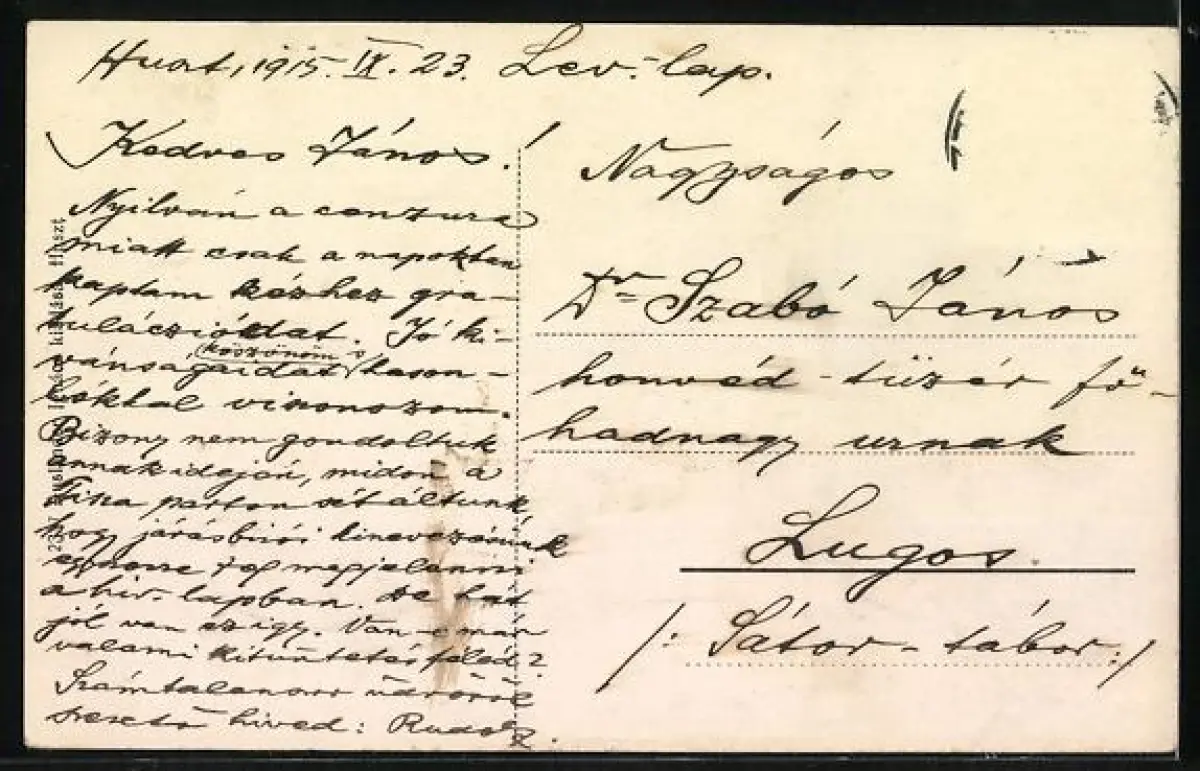 Huszt, 1915. IX. 23. Lev.-lap.
Kedves János!
Nyilván a cenzura
miatt csak a napokban
kaptam kézhez gra-
tulációdat. Jó ki-
vánságaidat köszönöm s hason-
lókkal viszonozom.
Bizony nem gondoltuk
annak idején, midőn a
Tisza parton sétáltunk
hogy járásbirói kinevezésünk
egyszerre fog megjelenni
a hiv. lapban. De hát
jól van ez igy. Van-e már
valami kitüntetésféléd?
Számtalanszor üdvözöl
szerető hived: Rudolf
Nagyságos
Dr Szabó János
honvéd-tüzér fő-
hadnagy urnak
Lugos.
/: Sátor-tábor :/